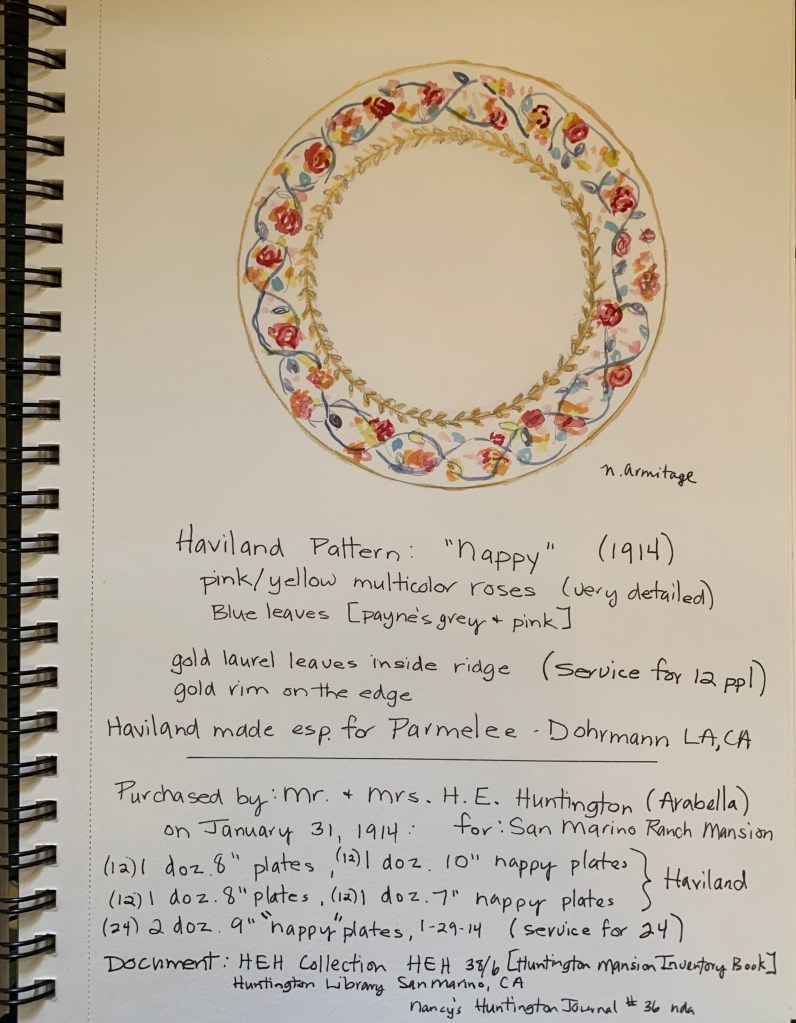 n. armitage
Haviland Pattern: "nappy" (1914)
pink/yellow multicolor roses (very detailed)
Blue leaves [payne's grey + pink]
gold laurel leaves inside ridge (service for 12 ppl)
gold rim on the edge
Haviland made esp. for Parmelee - Dohrmann LA, CA
Purchased by: Mr. + Mrs. H. E. Huntington (Arabella)
on January 31, 1914: for: San Marino Ranch Mansion
(12) 1 doz. 8" plates, (12) 1 doz. 10" nappy plates } Haviland
(12) 1 doz. 8" plates, (12) 1 doz. 7" nappy plates
(24) 2 doz. 9" "nappy" plates, 1-29-14 (service for 24)
Document: HEH Collection HEH 38/6 [Huntington Mansion Inventory Book]
Huntington Library San Marino, CA
Nancy's Huntington Journal #36 nda